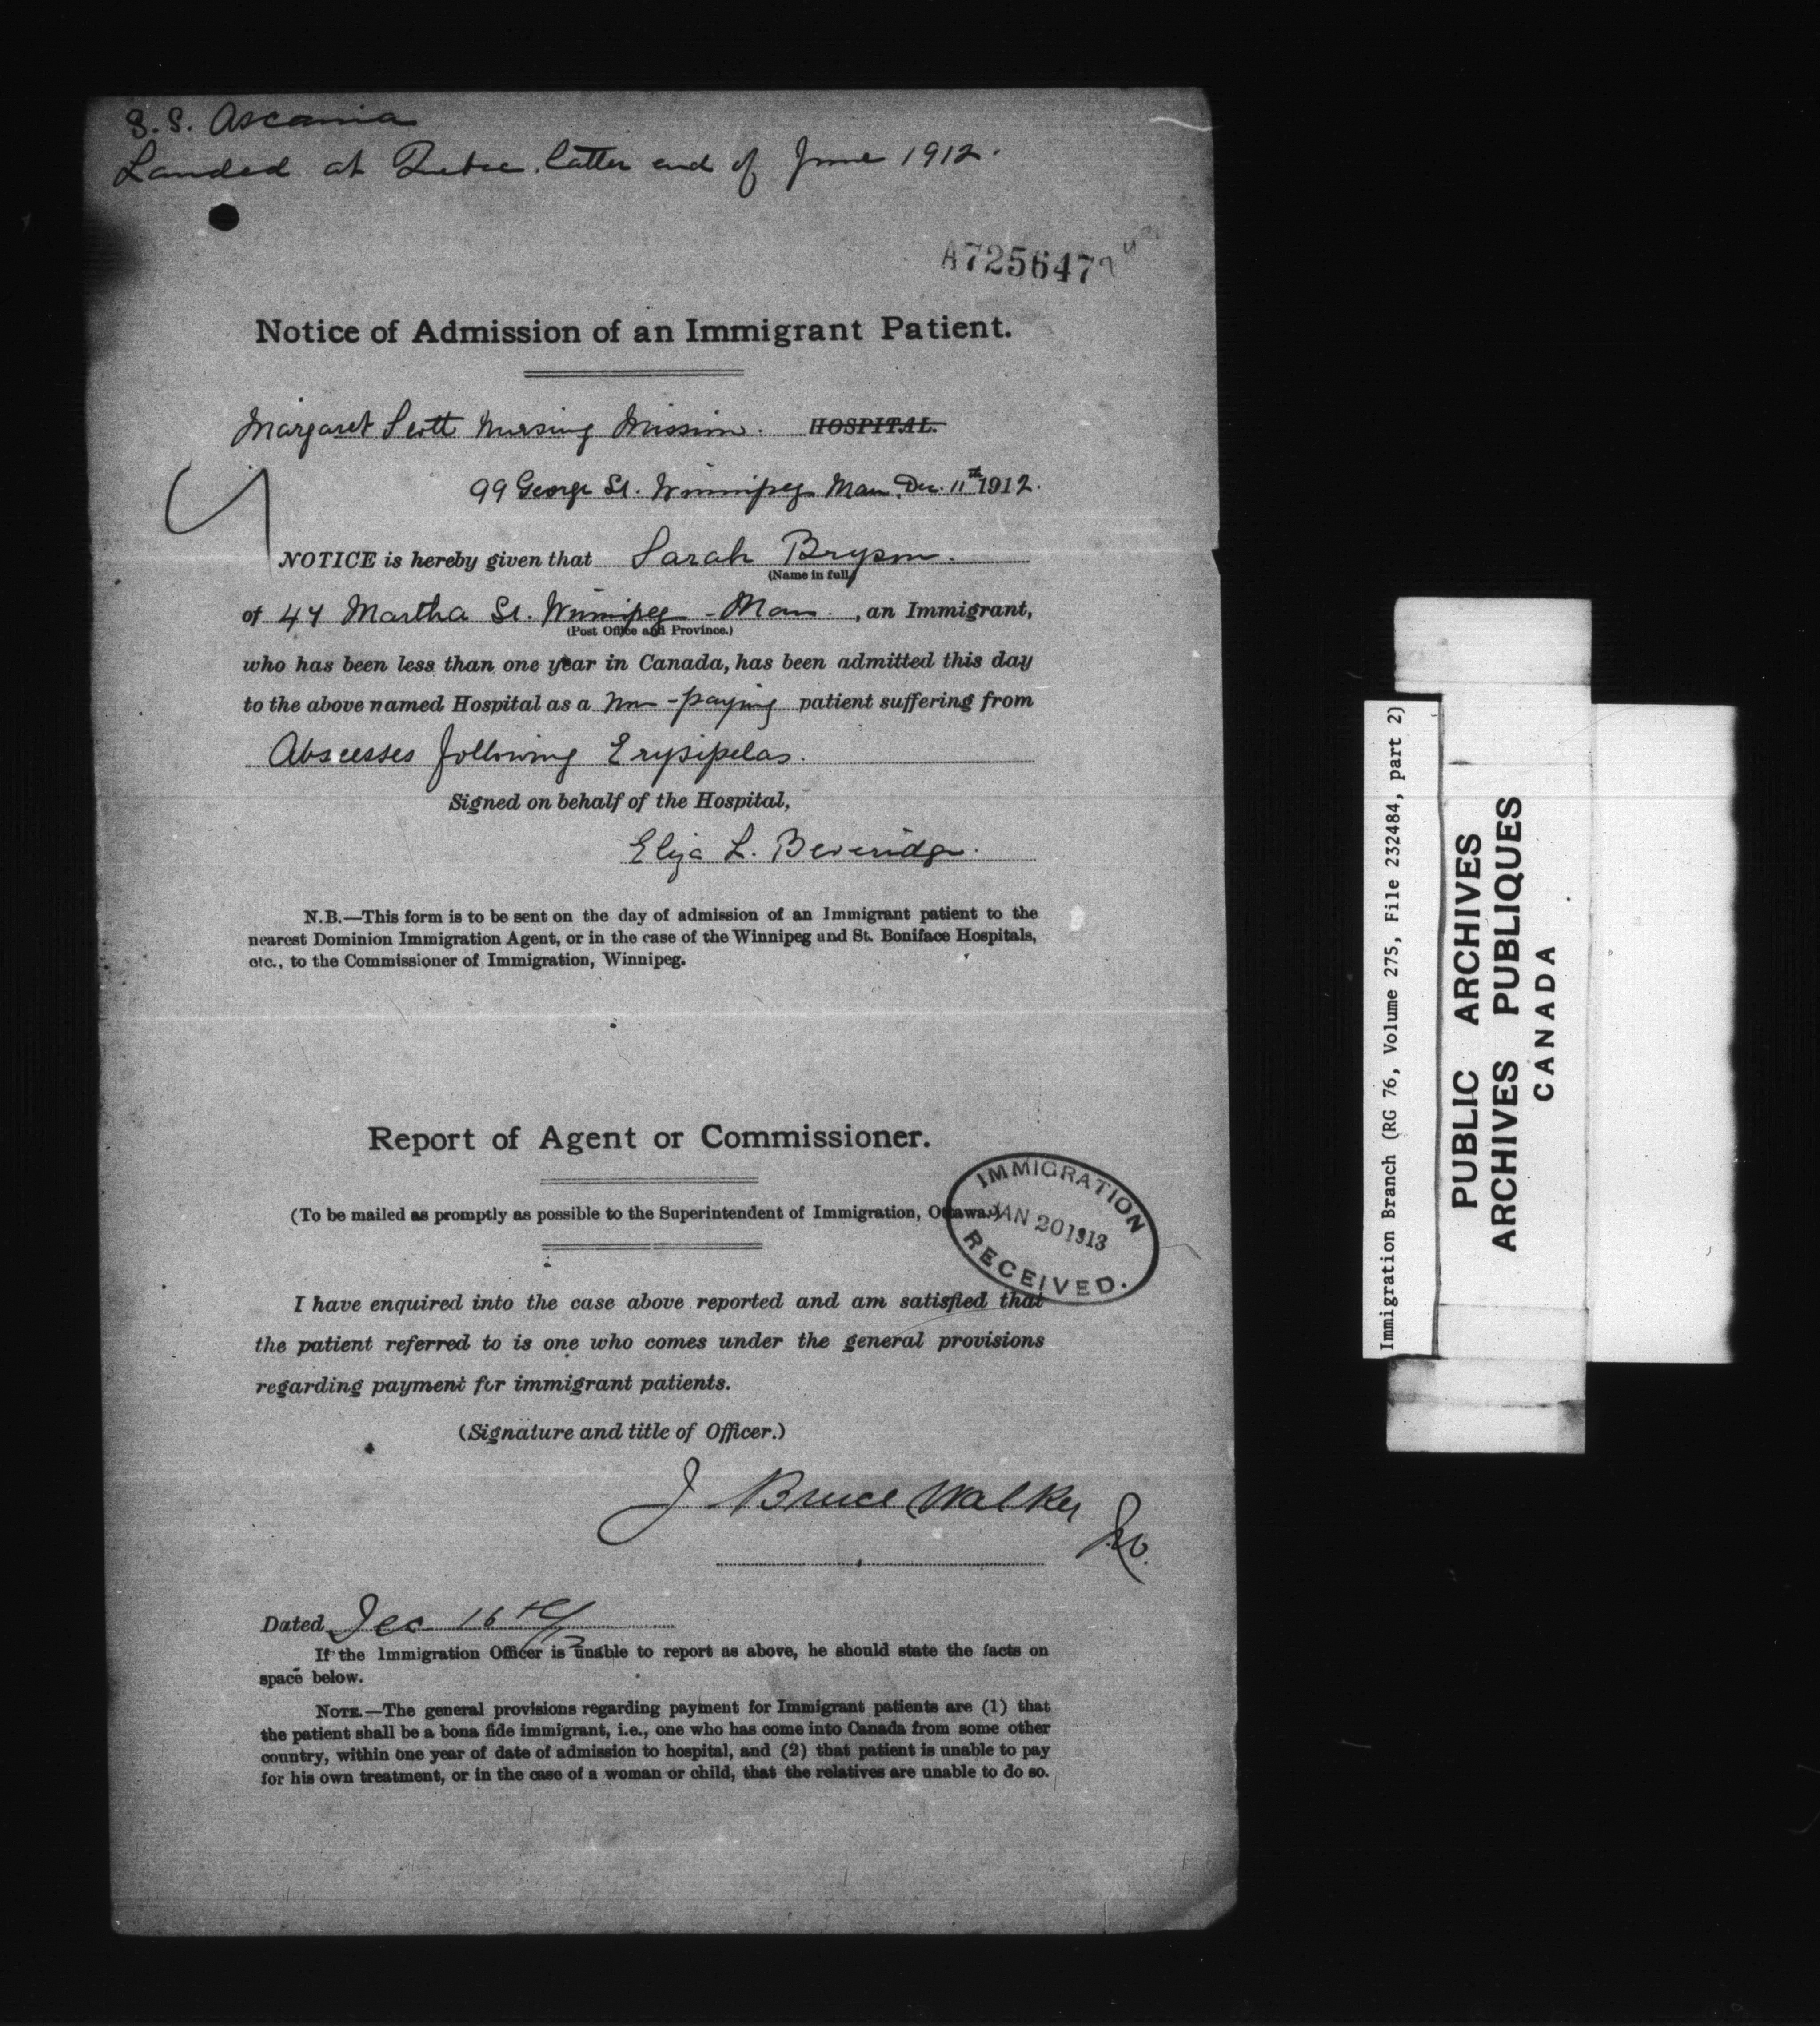 S. S. Ascania
Landed at Quebec. latter end of June 1912.
A725647
Notice of Admission of an Immigrant Patient.
Margaret Scott Nursing Mission. HOSPITAL.
99 George St. Winnipeg Man. Dec. 11th 1912.
NOTICE is hereby given that Sarah Bryson.
(Name in full)
of 47 Martha St. Winnipeg - Man., an Immigrant,
(Post Office and Province.)
who has been less than one year in Canada, has been admitted this day
to the above named Hospital as a non-paying patient suffering from
Abscesses following Erysipelas.
Signed on behalf of the Hospital,
Eliza L. Beveridge.
N.B.—This form is to be sent on the day of admission of an Immigrant patient to the
nearest Dominion Immigration Agent, or in the case of the Winnipeg and St. Boniface Hospitals,
etc., to the Commissioner of Immigration, Winnipeg.
Report of Agent or Commissioner.
(To be mailed as promptly as possible to the Superintendent of Immigration, Ottawa.)
IMMIGRATION
JAN 20 1913
RECEIVED.
I have enquired into the case above reported and am satisfied that
the patient referred to is one who comes under the general provisions
regarding payment for immigrant patients.
(Signature and title of Officer.)
J Bruce Walker
Dated Dec 16th/12
If the Immigration Officer is unable to report as above, he should state the facts on
space below.
NOTE.—The general provisions regarding payment for Immigrant patients are (1) that
the patient shall be a bona fide immigrant, i.e., one who has come into Canada from some other
country, within one year of date of admission to hospital, and (2) that patient is unable to pay
for his own treatment, or in the case of a woman or child, that the relatives are unable to do so.
Immigration Branch (RG 76, Volume 275, File 232484, part 2)
PUBLIC ARCHIVES
ARCHIVES PUBLIQUES
CANADA